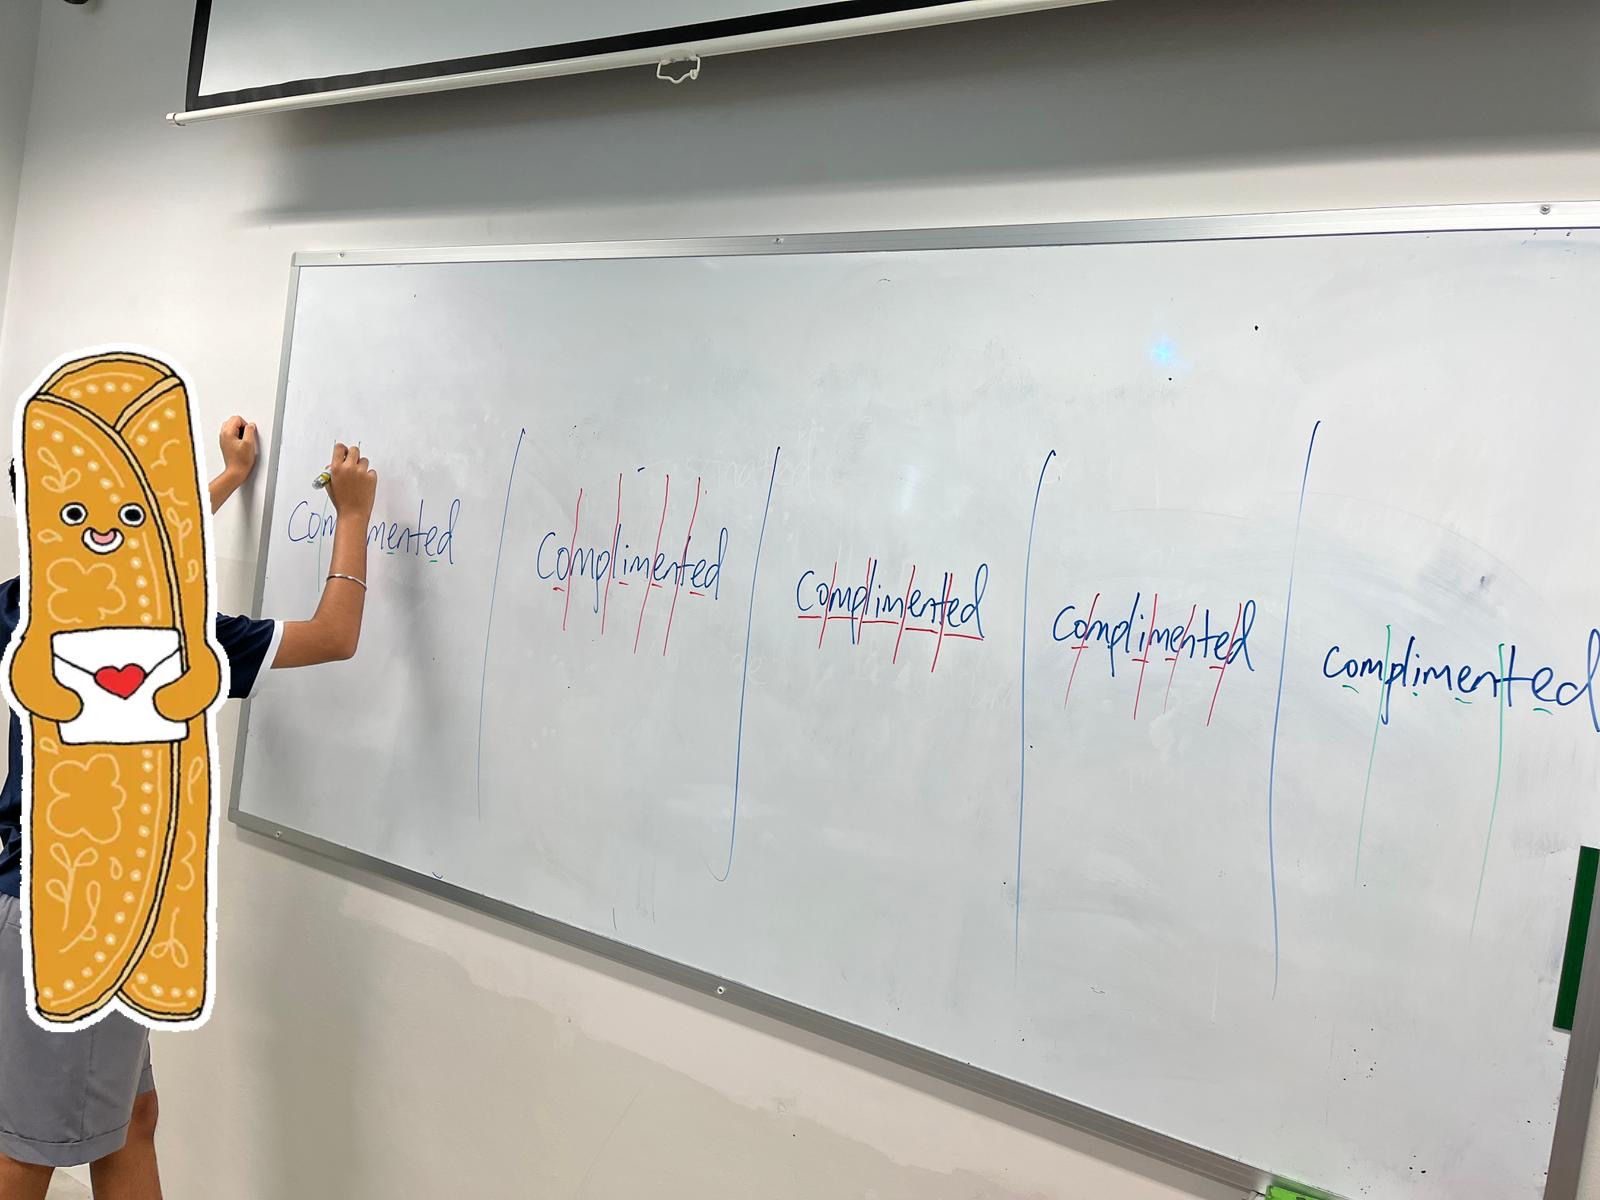 Complimented
Complimented
Complimented
Complimented
Complimented